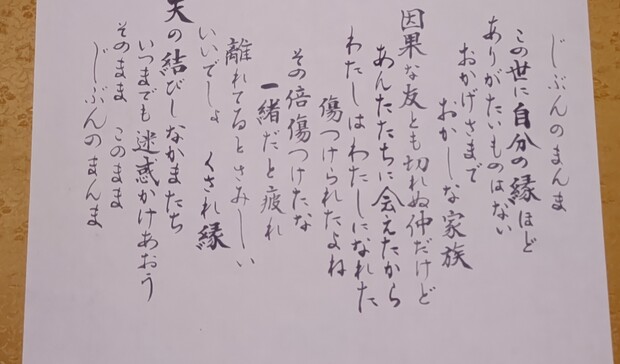 じぶんのまんま
この世に自分の縁ほど
ありがたいものはない
おかげさまで
おかしな家族
因果な友とも切れぬ仲だけど
あんたたちに会えたから
わたしはわたしになれた
傷つけられたよね
その倍傷つけたな
一緒だと疲れ
離れてるとさみしい
いいでしょ くされ縁
天の結びしなかまたち
いつまでも迷惑かけあおう
そのまま このまま
じぶんのまんま